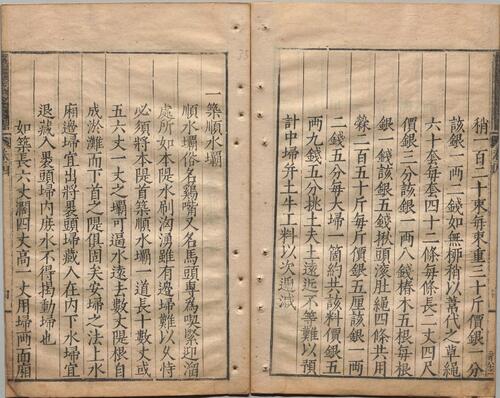 稍一百二十束每束重三十斤價銀一分
該銀一兩二錢如無柳稍以葦代之草繩
六十套每套四十二條每條長二丈四尺
價銀三分該銀一兩八錢樁木五根每根
銀一錢該銀五錢揪頭滾肚繩四條共用
檾二百五十斤每斤價銀五厘該銀一兩
二錢五分每大埽一箇約共該料價銀五
兩九錢五分挑土夫土遠近不等難以預
計中埽并土牛工料以次遞減
一築順水壩
順水壩俗名鷄嘴又名馬頭專為喫緊迎溜
處所如本隄水刷洶湧雖有邊埽難以久恃
必須將本隄首築順水壩一道長十數丈或
五六丈一丈之壩可逼水遠去數丈隄根自
成淤灘而下首之隄俱固矣安埽之法上水
廂邊埽宜出將裹頭埽藏入在内下水埽宜
退藏入裹頭埽内庶水不得揭動埽也
如築長六丈濶四丈高一丈用埽兩面廂